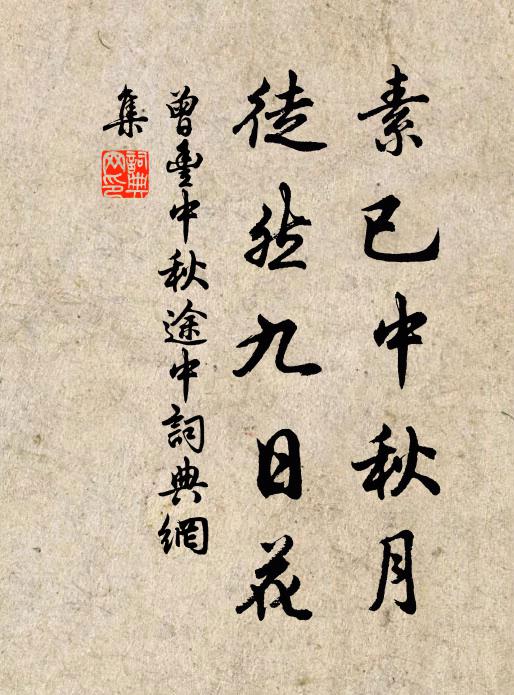 素已中秋月
徒然九日花
曾豊中秋途中詞典網
集
詞典
网印